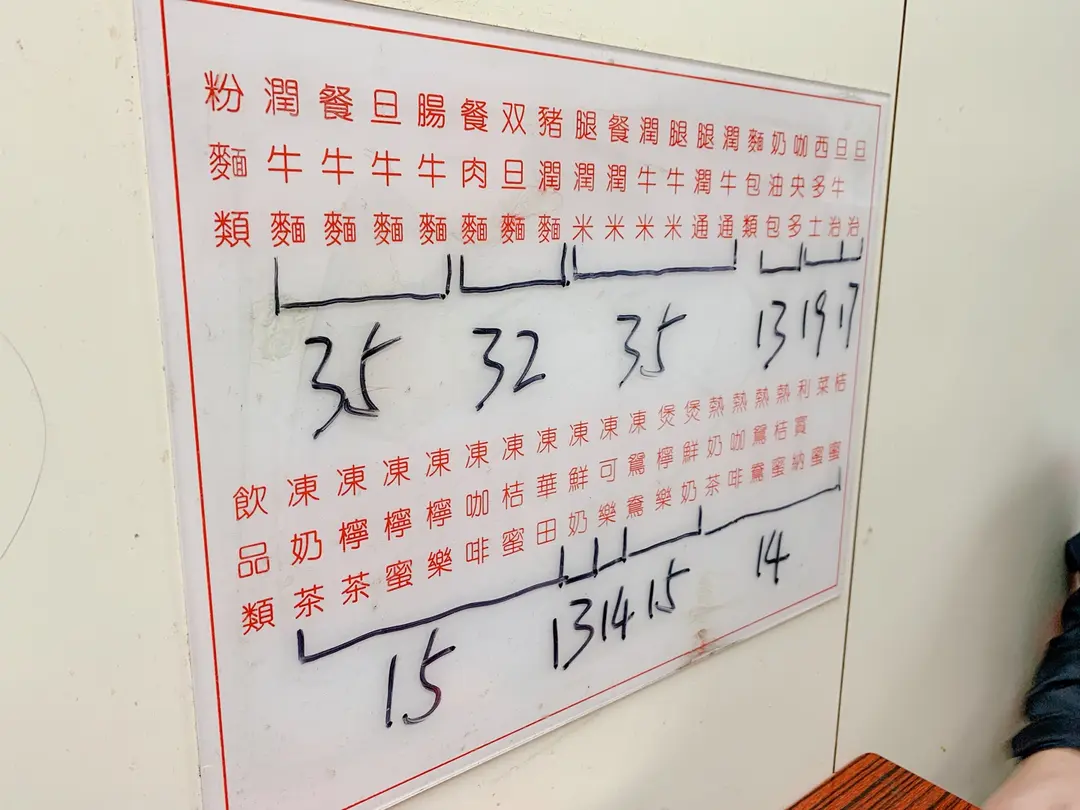 粉麵類
潤牛麵
餐牛麵
旦牛麵
腸牛麵
餐肉麵
双旦麵
豬潤麵
腿潤米
餐潤米
潤牛米
腿牛米
腿潤通
潤牛通
麵包類
奶油包
咖央多
西多士
旦牛治
旦治
35 32 35 13 19 17
飲品類
凍奶茶
凍檸茶
凍檸蜜
凍檸樂
凍咖啡
凍桔蜜
凍華田
凍鮮奶
凍可樂
凍鴛鴦
煲檸樂
煲鮮奶
熱奶茶
熱咖啡
熱鴛鴦
熱桔蜜
利賓納
菜蜜
桔蜜
15 13 14 15 14